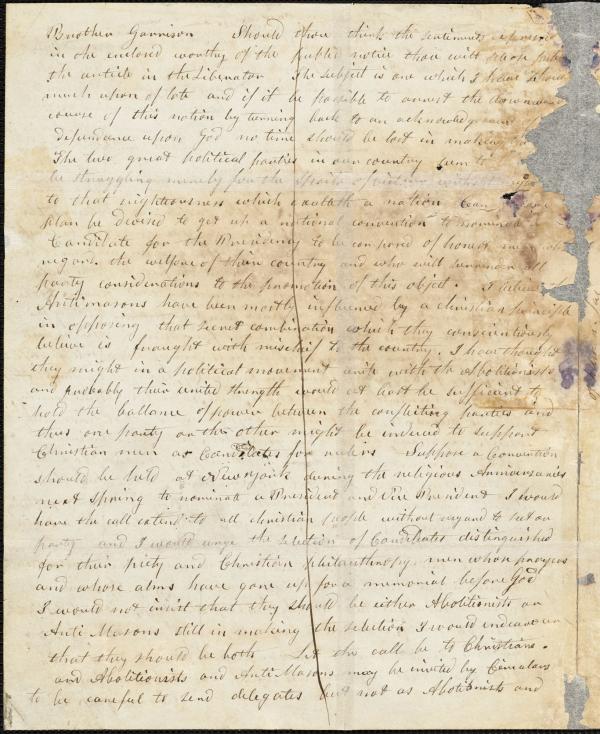 Brother Garrison Should thou think the sentiments expressed
in the enclosed worthy of the public notice thou will please
the article in the Liberator The subject is one which I have
much upon of late and if it be possible to arrest the downward
course of this nation by turning back to an acknowledgement
dependance upon God no time should be lost in making
The two great political parties in our country seem to
be struggling merely for the spoils of
to that righteousness which exalteth a nation Can
plan be devised to get up a national convention to nominate
Candidate for the Presidency to be composed of honest men who
regard the welfare of their country and who will surrender all
party considerations to the promotion of this object. I believe
Antimasons have been mostly influenced by a christian principle
in opposing that secret combination which they conscientiously
believe is fraught with mischief to the country. I have thought
they might in a political movement unite with the Abolitionists
and probably their united strength would at least be sufficient to
hold the ballance of power between the conflicting parties and
thus one party or the other might be induced to support
Christian men as Candidates for rulers Suppose a Convention
should be held at Newyork during the religious Anniversaries
next Spring to nominate a President and Vice President I would
have the call extend to all christian people without regard to sect or
party and I would urge the selection of Candidates distinguished
for their piety and Christian philanthropy. men whose prayers
and whose alms have gone up for a memorial before God
I would not insist that they should be either Abolitionists or
Anti Masons still in making the selection I would endeavour
that they should be both Let the call be to Christians.
and Abolitionists and Anti Masons may be invited by Circulars
to be careful to send delegates but not as Abolitionists and